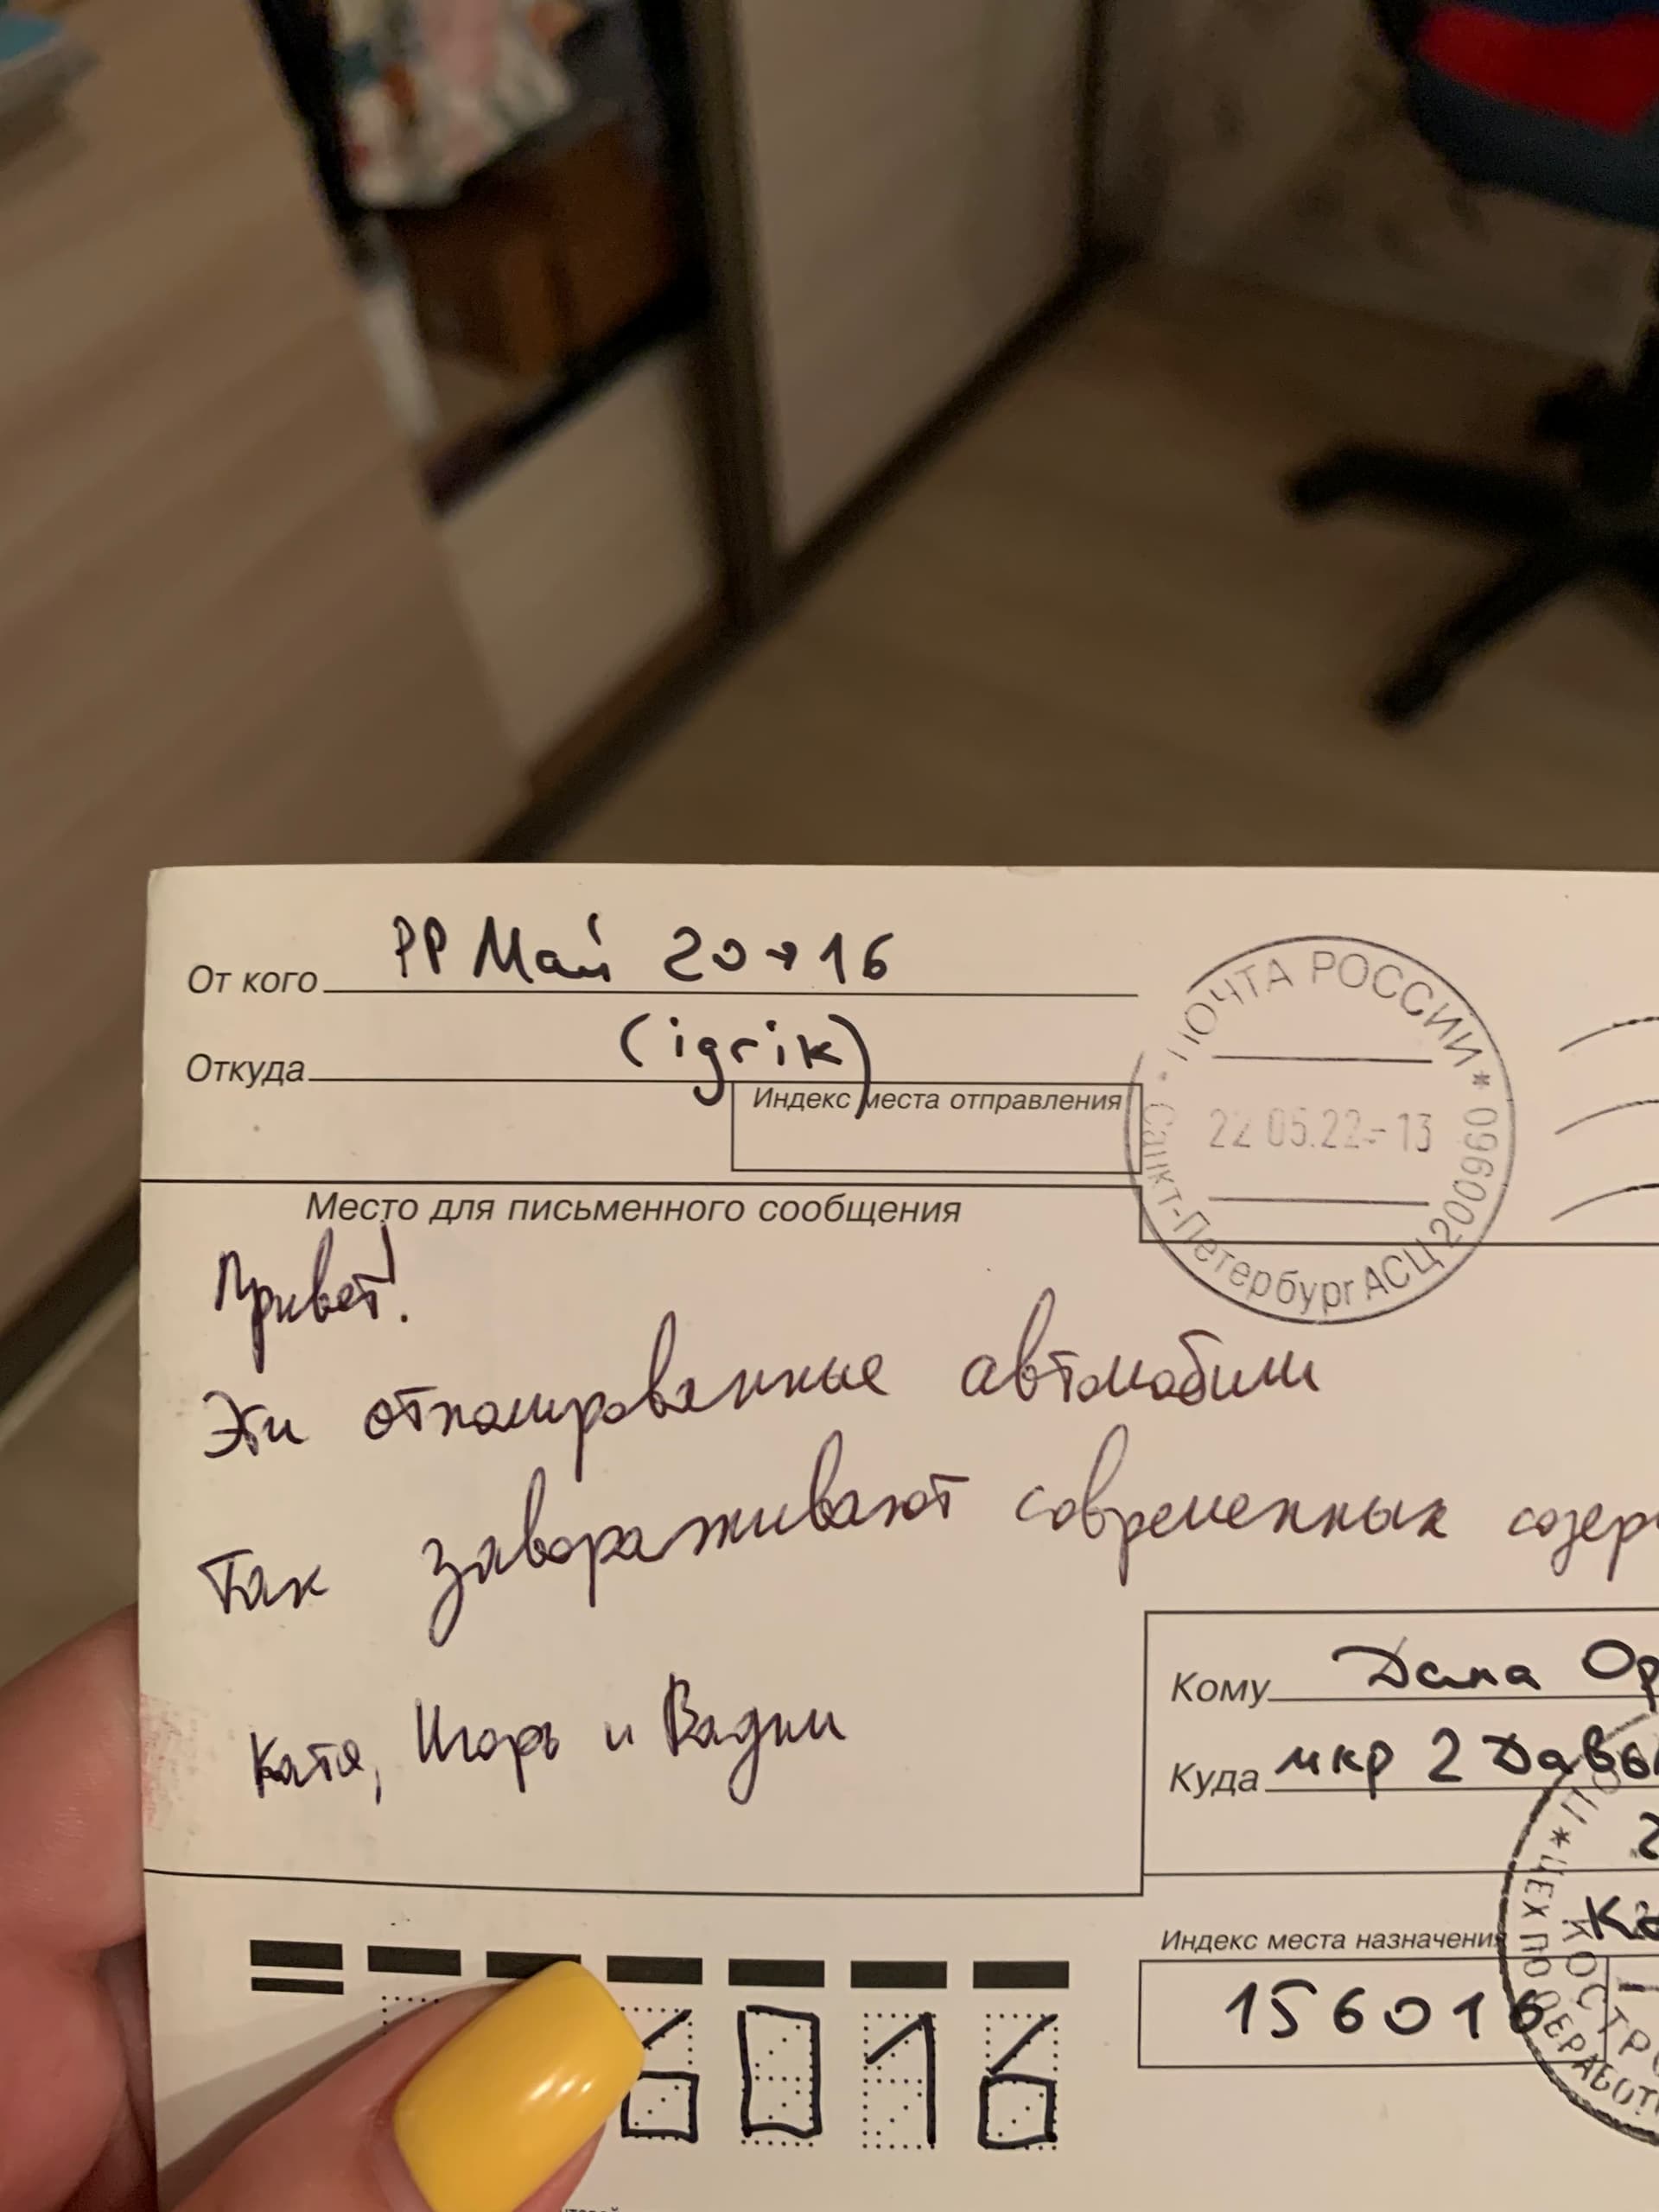 От кого РР Май 20→16
Откуда (igrik)
Индекс места отправления
ПОЧТА РОССИИ *
22 05.22 - 13
Санкт-Петербург АСЦ 200960
Место для письменного сообщения
Привет!
Эти отполированные автомобили
Так завораживают современных созер
Катя, Игорь и Вадим
Кому Дана Ор
Куда мкр 2 Давы
2
Индекс места назначения
156016